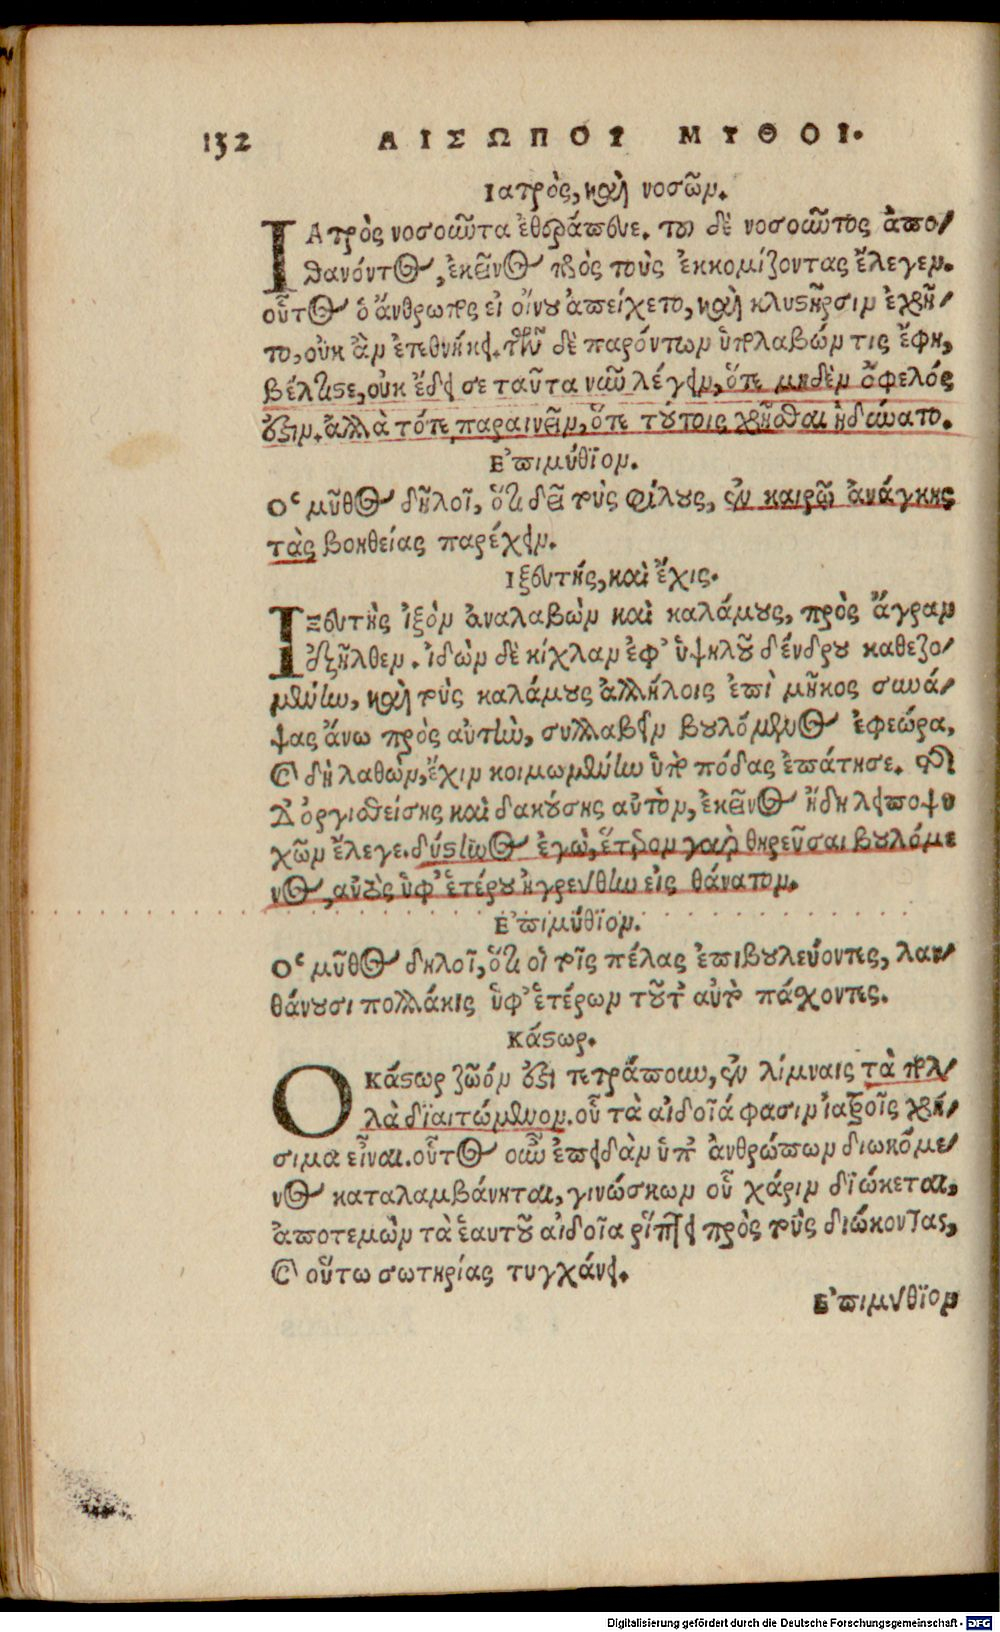 132 ΑΙΣΩΠΟΥ ΜΥΘΟΙ.
Ιατρὸς, καὶ νοσῶν.
ΙΑτρὸς νοσοῦντα ἐθεράπευε. τοῦ δὲ νοσοῦντος ἀπο-
θανόντος, ἐκεῖνος πρὸς τοὺς ἐκκομίζοντας ἔλεγεν.
οὗτος ὁ ἄνθρωπος εἰ οἴνου ἀπείχετο, καὶ κλυστῆρσιν ἐχρῆ-
το, οὐκ ἂν ἐτεθνήκει. τῶν δὲ παρόντων ὑπολαβών τις ἔφη,
βέλτιστε, οὐκ ἔδει σε ταῦτα νῦν λέγειν, ὅτε μηδὲν ὄφελός
ἐστιν. ἀλλὰ τότε παραινεῖν, ὅτε τούτοις χρῆσθαι ἠδύνατο.
Ἐπιμύθϊον.
Ὁ μῦθος δῆλοῖ, ὅτι δεῖ τοὺς φίλους, ἐν καιρῷ ἀνάγκης
τὰς βοηθείας παρέχειν.
Ιξευτής, καὶ ἔχις.
ΙΞευτὴς ἰξὸν ἀναλαβὼν καὶ καλάμους, πρὸς ἄγραν
ἐξῆλθεν. ἰδὼν δὲ κίχλαν ἐφ' ὑψηλοῦ δένδρου καθεζο-
μένην, καὶ τοὺς καλάμους ἀλλήλοις ἐπὶ μῆκος συνά-
ψας ἄνω πρὸς αὐτὴν, συλλαβεῖν βουλόμενος ἐφεώρα,
καὶ δὴ λαθὼν, ἔχιν κοιμωμένην ὑπὸ πόδας ἐπάτησε. τῆς
δ' ὀργισθείσης καὶ δακούσης αὐτὸν, ἐκεῖνος ἤδη λειποψυ
χῶν ἔλεγε. δύστηνος ἐγὼ, ἕτερον γὰρ θηρεῦσαι βουλόμε
νος, αὐτὸς ὑφ' ἑτέρου ἠγρεύθην εἰς θάνατον.
Ἐπιμύθϊον.
Ὁ μῦθος δηλοῖ, ὅτι οἱ τοῖς πέλας ἐπιβουλεύοντες, λαν-
θάνουσι πολλάκις ὑφ' ἑτέρων τοῦτ' αὐτὸ πάσχοντες.
Κάστωρ.
Ο Κάστωρ ζῶόν ἐστι τετράπουν, ἐν λίμναις τὰ πολ-
λὰ δϊαιτώμενον. οὗ τὰ αἰδοῖά φασιν ἰατροῖς χρή-
σιμα εἶναι. οὗτος οὖν ἐπειδὰν ὑπ' ἀνθρώπων διωκόμε-
νος καταλαμβάνηται, γινώσκων οὗ χάριν δϊώκεται,
ἀποτεμὼν τὰ ἑαυτοῦ αἰδοῖα ῥίπτει πρὸς τοὺς διώκοντας,
καὶ οὕτω σωτηρίας τυγχάνει.
Ἐπιμύθϊον
Digitalisierung gefördert durch die Deutsche Forschungsgemeinschaft - DFG